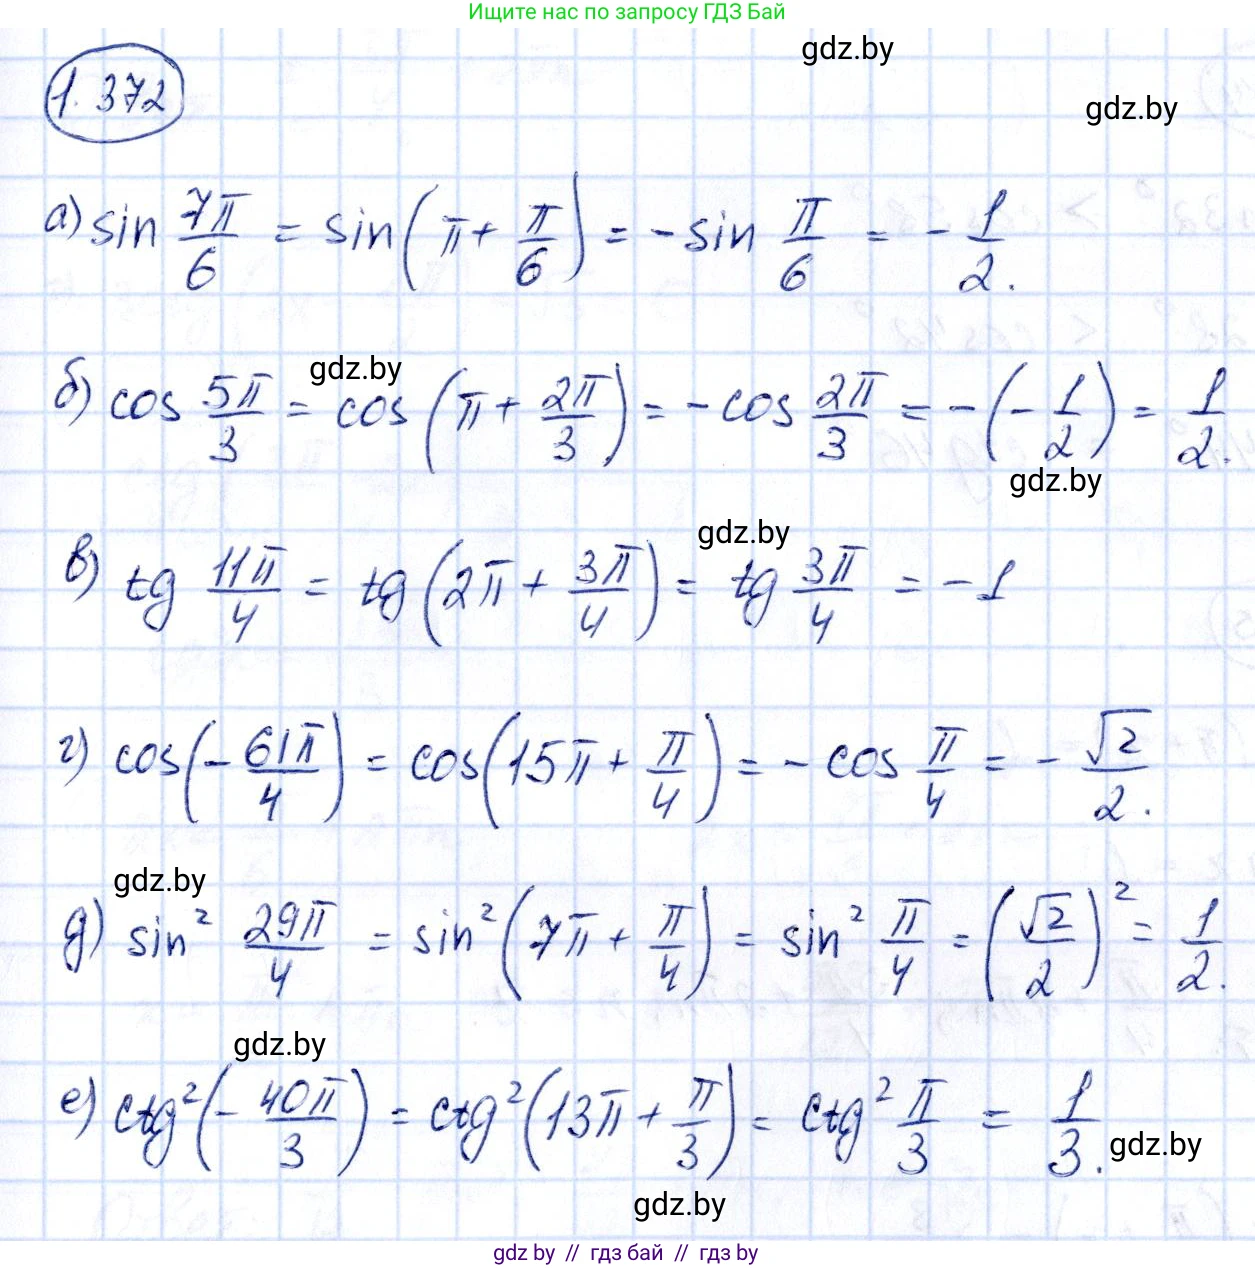 Ищите нас по запросу ГДЗ Бай
gdz.by
1.372
gdz.by
а) sin 7π/6 = sin(π + π/6) = -sin π/6 = -1/2.
gdz.by
б) cos 5π/3 = cos(π + 2π/3) = -cos 2π/3 = -(-1/2) = 1/2.
gdz.by
gdz.by
в) tg 11π/4 = tg(2π + 3π/4) = tg 3π/4 = -1
г) cos(-61π/4) = cos(15π + π/4) = -cos π/4 = -√2/2.
gdz.by
д) sin² 29π/4 = sin²(7π + π/4) = sin² π/4 = (√2/2)² = 1/2.
gdz.by
е) ctg²(-40π/3) = ctg²(13π + π/3) = ctg² π/3 = 1/3.
gdz.by
gdz.by
gdz by // гдз бай // гдз by